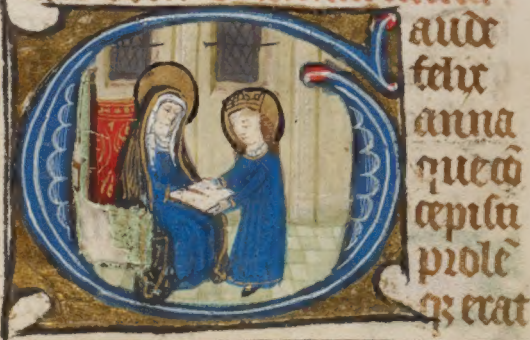 aude
felix
anna
que cō
cepisti
prolē
q̄ erat